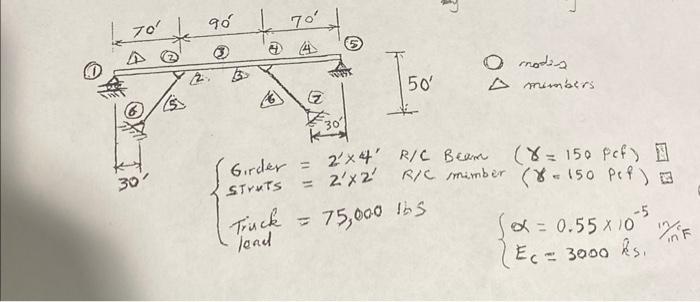 70' 90' 70'
1 1 2 3 4 4 5
2 3
6 5 6 7
50'
30' 30'
○ nodes
△ members
Girder = 2'x4' R/C Beam (γ = 150 pcf)
STruTS = 2'x2' R/C member (γ = 150 pcf)
Truck load = 75,000 lbs
α = 0.55 x 10⁻⁵ in/in°F
Ec = 3000 ksi